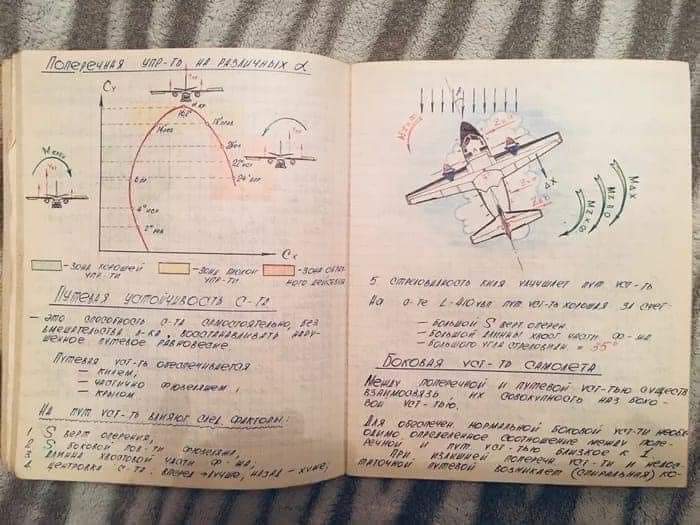 Поперечная упр-ть на различных α
Cy
α кр
Cx
– зона хорошей упр-ти
– зона плохой упр-ти
– зона обратного действия
Путевая устойчивость с-та
– это способность с-та самостоятельно, без
вмешательства л-ка, восстанавливать нару-
шенное путевое равновесие.
Путевая уст-ть обеспечивается
– килем,
– частично фюзеляжем,
– крылом
На пут уст-ть влияют след. факторы:
1 S верт оперения,
2 S боковой пов-ти фюзеляжа,
3 длинна хвостовой части ф-жа,
4. центровка с-та. вперед → лучше, назад – хуже,
ΔX
5 стреловидность киля улучшает пут уст-ть
На с-те L-410увп пут уст-ть хорошая за счет
– большой S верт оперен.
– большой длинны хвост части ф-жа
– большого угла стреловидн. = 35°
Боковая уст-ть самолета
Между поперечной и путевой уст-тью существ
взаимосвязь, их совокупность наз боко-
вой уст-тью,
Для обеспечен нормальной боковой уст-ти необхо-
димо определенное соотношение между попе-
речной и пут уст-тью близкое к 1
При излишней поперечн уст-ти и недос-
таточной путевой возникает (спиральная) ко-